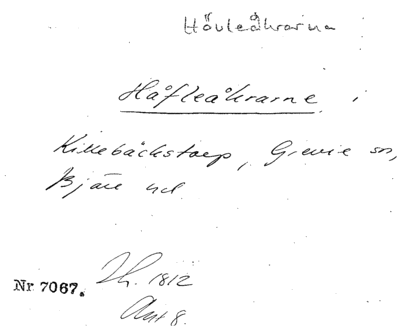 Hövleåkrarna
Håfleåkrarne i
Killebäckstorp, Grevie sn,
Bjäre hd
Nr 7067. Ih. 1812
Akt 8.